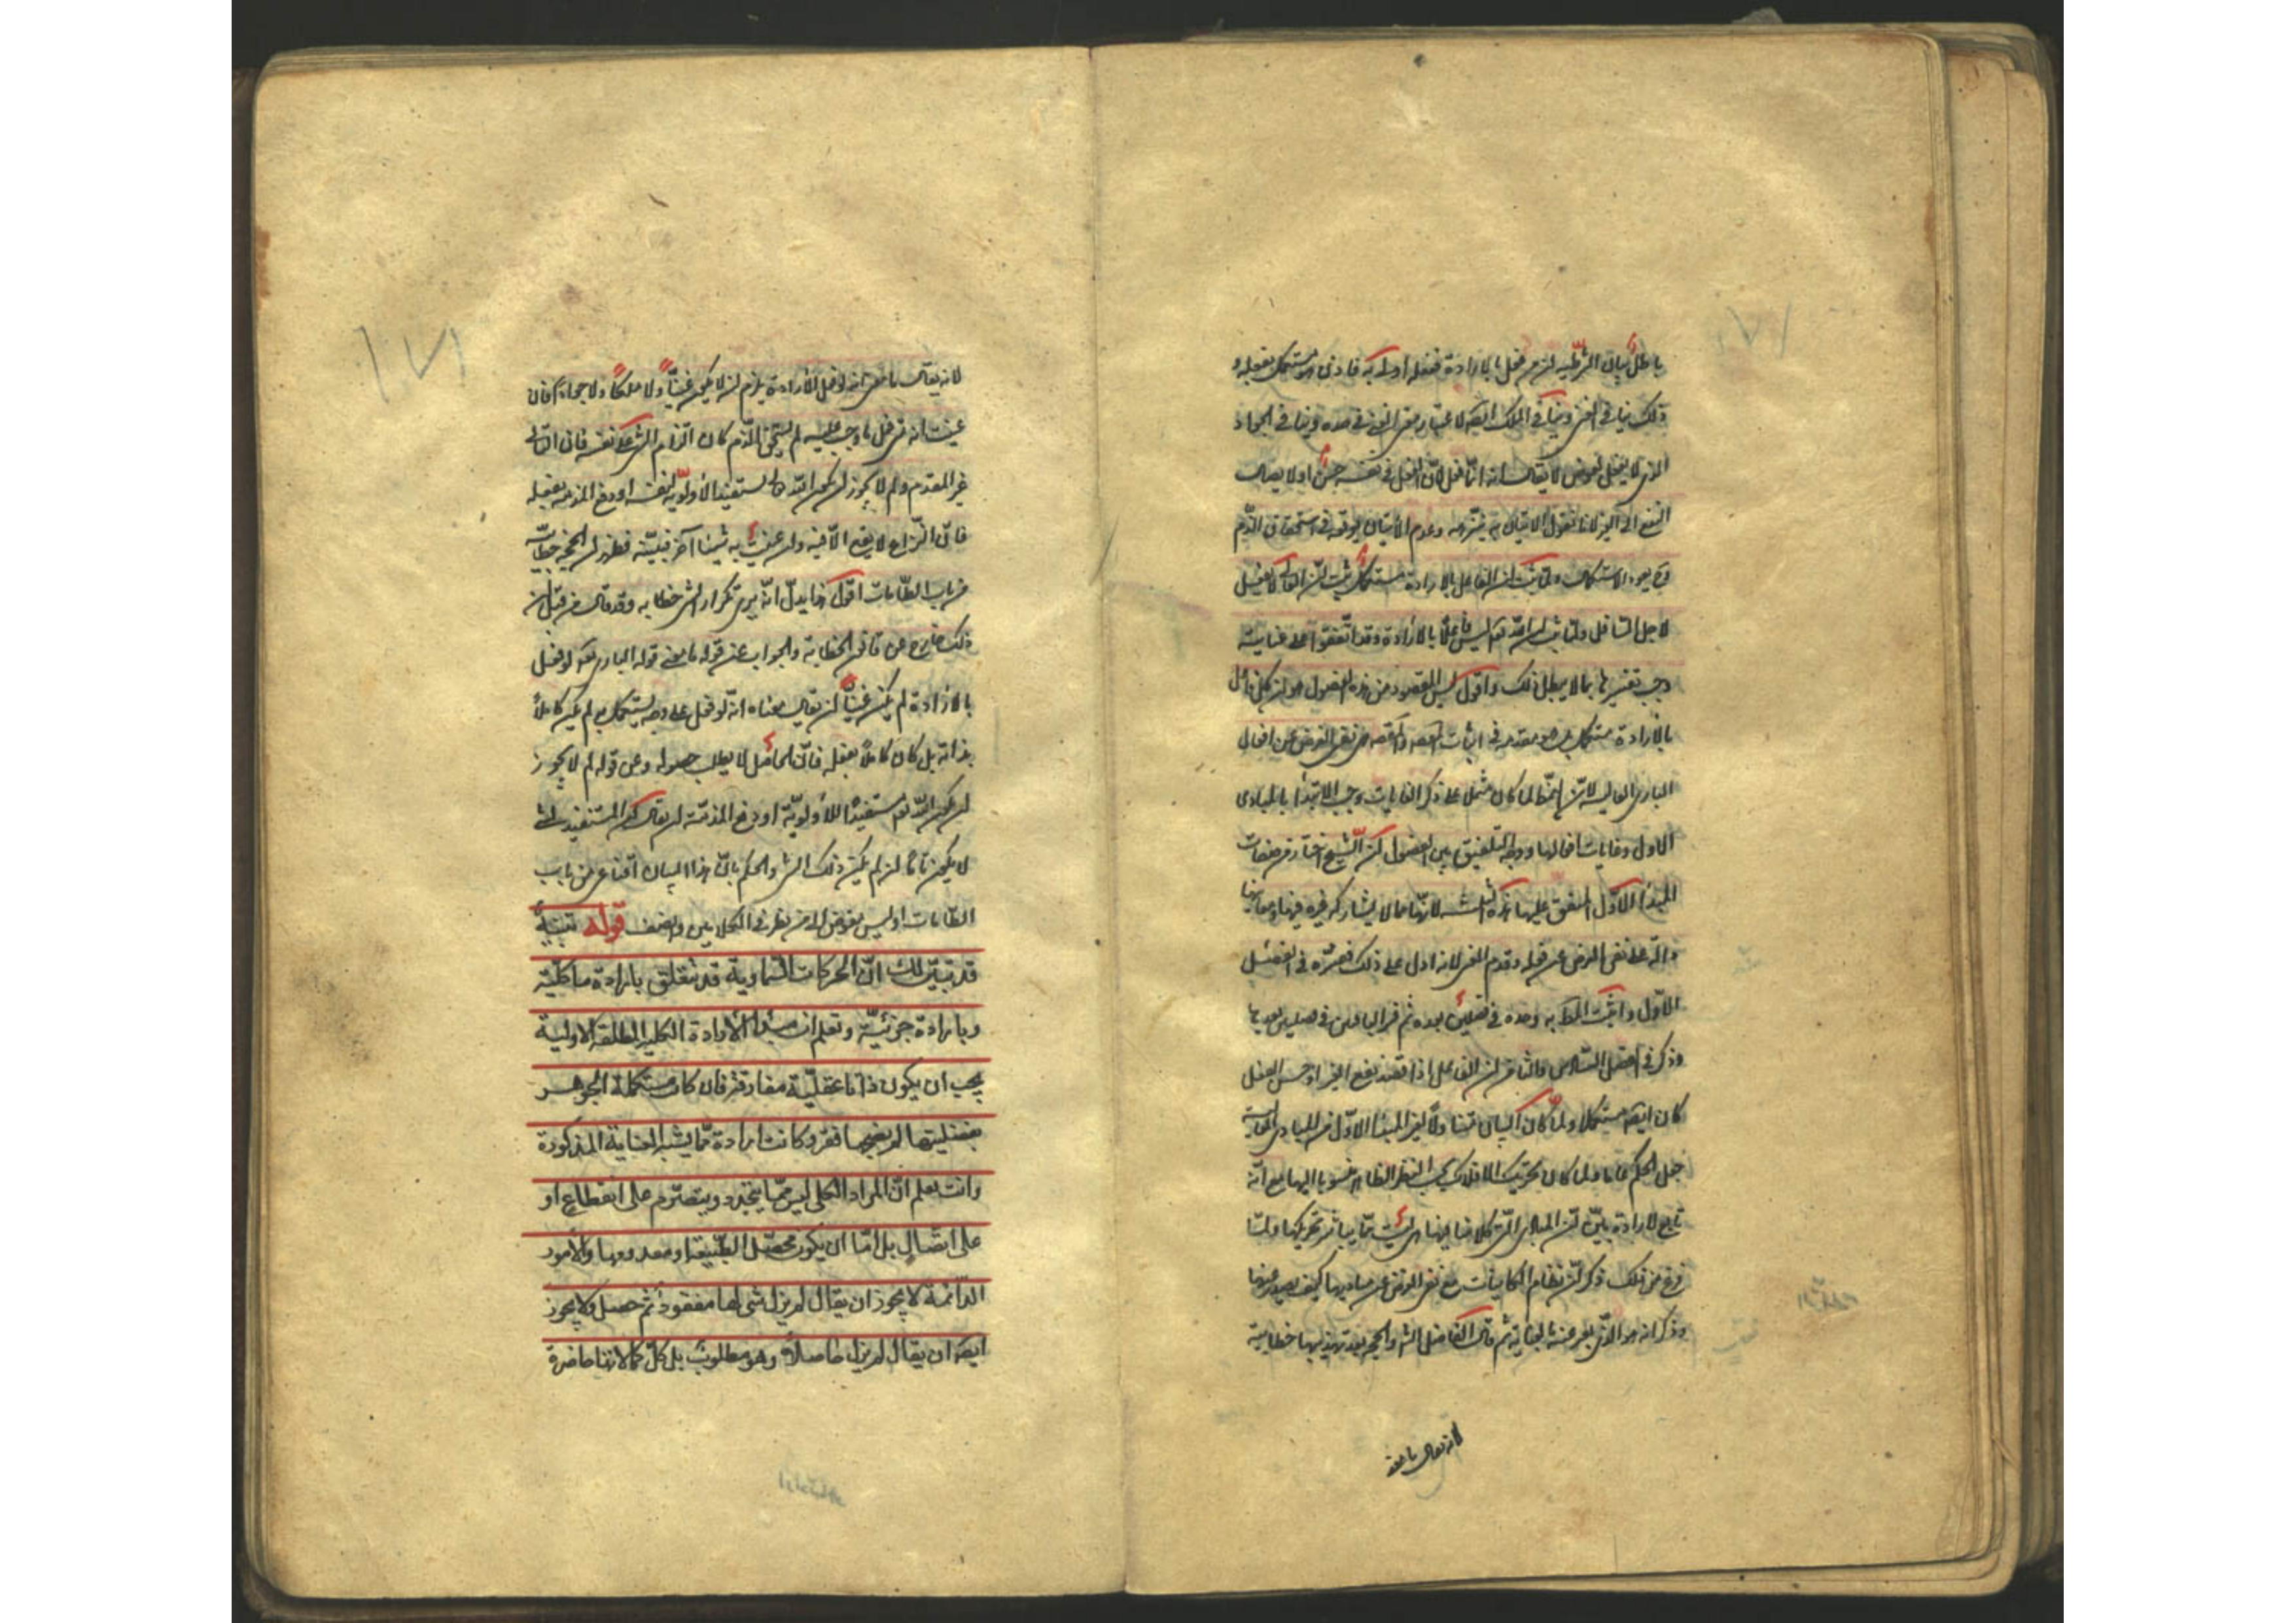 باطل بيان الشرطية ان من فعل بالارادة ففعله اولى به فاذن هو مستكمل بفعله و
ذلك ينافى الغنى وينافى الملك ايضه لاعتبار معنى الغنى فى حده وينافى الجواد
الذى لا يفعل لعوض لا يقال انه انما فعل لان الفعل فى نفسه حسن او لايصال
النفع الى الغير لانا نقول الاتيان به ينزهه وعدم الاتيان يوقعه فى استحقاق الذم
فح يعود الاستكمال ولما ثبت ان الفاعل بالارادة مستكمل ثبت ان العالى لا يفعل
لاجل السافل ولما ثبت ان الله تعه ليس فاعلا بالارادة وقد اتفقوا على عنايته
وجب تفسيرها بما لا يبطل ذلك واقول ليس المقصود من هذه الفصول هو ان كل فاعل
بالارادة مستكمل بل هو مقدمة فى اثبات المقصد والمقصد هو نفى الغرض عن افعال
البارى العالية لان النمط لما كان مشتملا على ذكر الغايات وجب الابتداء بالمبادى
الاول وغايات افعالها ووجه التلفيق بين الفصول ان الشيخ اختار من صفات
المبدا الاول المتفق عليها هذه الثلثة لانها مما لا يشاركه غيره فيها ومعانيها
دالة على نفى الغرض عن فعله وقدم الغنى لانه ادل على ذلك ففسره فى الفصل
الاول واثبت المط به وحده فى فصلين بعده ثم فسر الباقين فى فصلين بعدها
وذكر فى الفصل السادس والثامن ان الفاعل اذا قصد نفع الغير او حسن الفعل
كان ايضه مستكملا ولما كان البيان متناولا لغير المبدا الاول من المبادى العالية
جعل الحكم عاما ولما كان تحريك الافلاك بحسب النظر الظاهر منسوبا اليها مع انه
تابع لارادة بين ان المبادى التى كلامنا فيها هى ليست مما يباشر تحريكها ولما
فرغ من ذلك ذكر ان نظام الكاينات مع نفى الغرض عن مباديها كيف يصدر عنها
وذكر انه هو الذى يعبر عنه بالعناية ثم قال الفاضل الشر والحجة بعد تهذيبها خطابية
لانه يقال ما معنى
١٧١
لانه يقال ما معنى انه لو فعل بالارادة يلزم ان لا يكون غنيا ولا ملكا ولا جوادا فان
عنيت انه متى فعل ما وجب عليه لم يستحق الذم كان الزام الشىء على نفسه فان التالى
غير المقدم ولم لا يجوز ان يكون الله تعالى مستفيدا لاولوية لنفسه او دفع المذمة بفعله
فان النزاع لا يقع الا فيه وان عنيت به شيئا آخر فبينه فظهر ان الحجة خطابية
من باب الطامات اقول هذا يدل انه يرى تكرار الشىء خطابة وقد قال من قبل ان
ذلك خارج عن قانون الخطابة والجواب عن قوله ما معنى قوله البارى تعه لو فعل
بالارادة لم يكن غنيا ان يقال معناه انه لو فعل على وجه يستكمل به لم يكن كاملا
بذاته بل كان كاملا بفعله فان الحاصل لا يطلب حصوله وعن قوله لم لا يجوز
ان يكون الله تعه مستفيدا للاولوية او دفع المذمة ان يقال لان المستفيد لشىء
لا يكون تاما ان لم يكن ذلك الشىء والحكم بان هذا البيان اقناعى من باب
الطامات او ليس يفوض الى من نظر فى الكلامين وانصف قوله تنبيه
قد تبين لك ان الحركات السماوية قد تتعلق بارادة ما كلية
وبارادة جزئية وتعلم ان مبدأ الارادة الكلية المطلقة الاولية
يجب ان يكون ذاتا عقلية مفارقة فان كان مستكملة الجوهر
بفضيلتها لم يصحبها فقر وكانت ارادة مما يشبه العناية المذكورة
وانت تعلم ان المراد الكلى ليس مما يتجدد ويتصرم على انقطاع او
على اتصال بل اما ان يكون محصل الطبيعة او معدومها والامور
الدائمة لا يجوز ان يقال لم يزل شى لها مفقودا ثم حصل ولا يجوز
ايضه ان يقال لم يزل حاصلا وهو مطلوب بل كل كمالاتها حاضرة